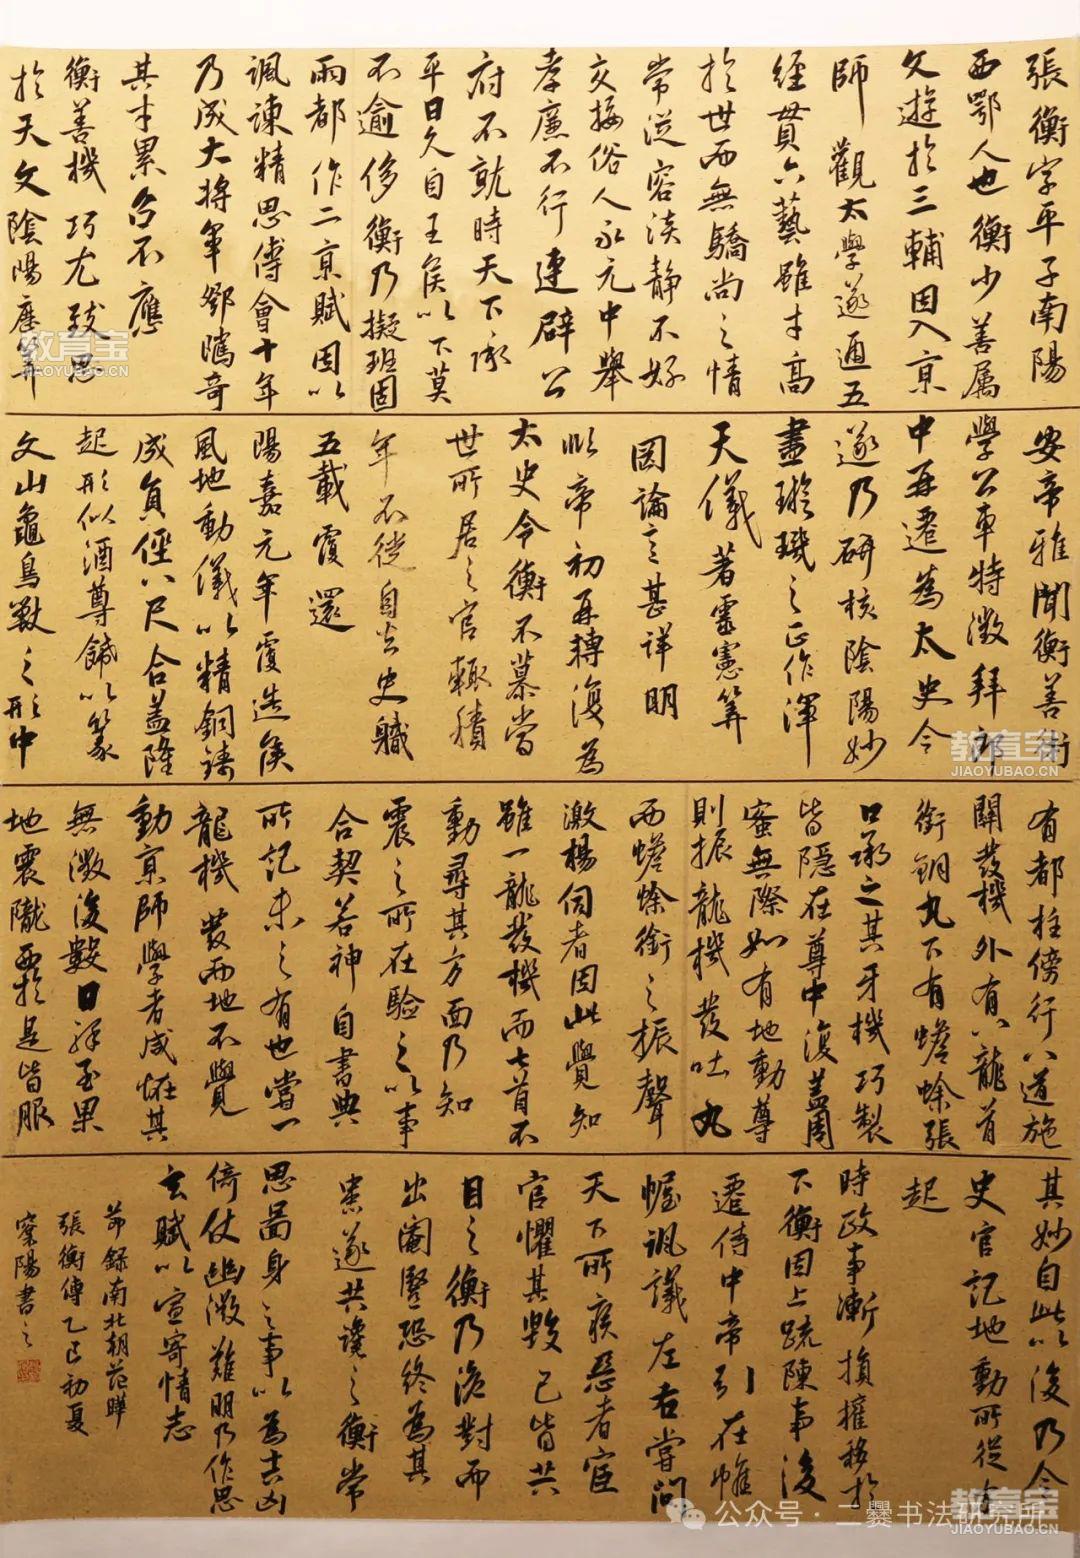 張衡字平子南陽
西鄂人也衡少善属
文遊於三輔因入京
師觀太學遂通五
經貫六藝雖才高
於世而無驕尚之情
常從容淡静不好
交接俗人永元中舉
孝廉不行連辟公
府不就時天下承
平日久自王侯以下莫
不逾侈衡乃擬班固
兩都作二京賦因以
諷諫精思傅會十年
乃成大將軍鄧騭奇
其才累召不應
衡善機巧尤致思
於天文陰陽歷筭
安帝雅聞衡善術
學公車特徵拜郎
中再遷為太史令
遂乃研核陰陽妙
盡璇璣之正作渾
天儀著靈憲筭
罔論言甚詳明
順帝初再轉復為
太史令衡不慕當
世所居之官輒積
年不徙自去史職
五載復還
陽嘉元年復造候
風地動儀以精銅鑄
成員徑八尺合蓋隆
起形似酒尊飾以篆
文山龜鳥獸之形中
有都柱傍行八道施
關發機外有八龍首
銜銅丸下有蟾蜍張
口承之其牙機巧製
皆隱在尊中復蓋周
蜜無際如有地動尊
則振龍機發吐丸
而蟾蜍銜之振聲
激楊伺者因此覺知
雖一龍發機而七首不
動尋其方面乃知
震之所在驗之以事
合契若神自書典
所記未之有也嘗一
龍機發而地不覺
動京師學者咸恠其
無徵後數日驛至果
地震隴西於是皆服
其妙自此以後乃令
史官記地動所從方
起
時政事漸損權移於
下衡因上疏陳事後
遷侍中帝引在帷
幄諷議左右嘗問
天下所疾惡者宦
官懼其毀己皆共
目之衡乃詭對而
出閹豎恐終為其
患遂共讒之衡常
思圖身之事以為吉凶
倚仗幽微難明乃作思
玄賦以宣寄情志
節録南北朝范曄
張衡傳乙巳初夏
陽書之
教育宝
JIAOYUBAO.CN
教育宝
JIAOYUBAO.CN
教育宝
JIAOYUBAO.CN
公众号·二爨书法研究所